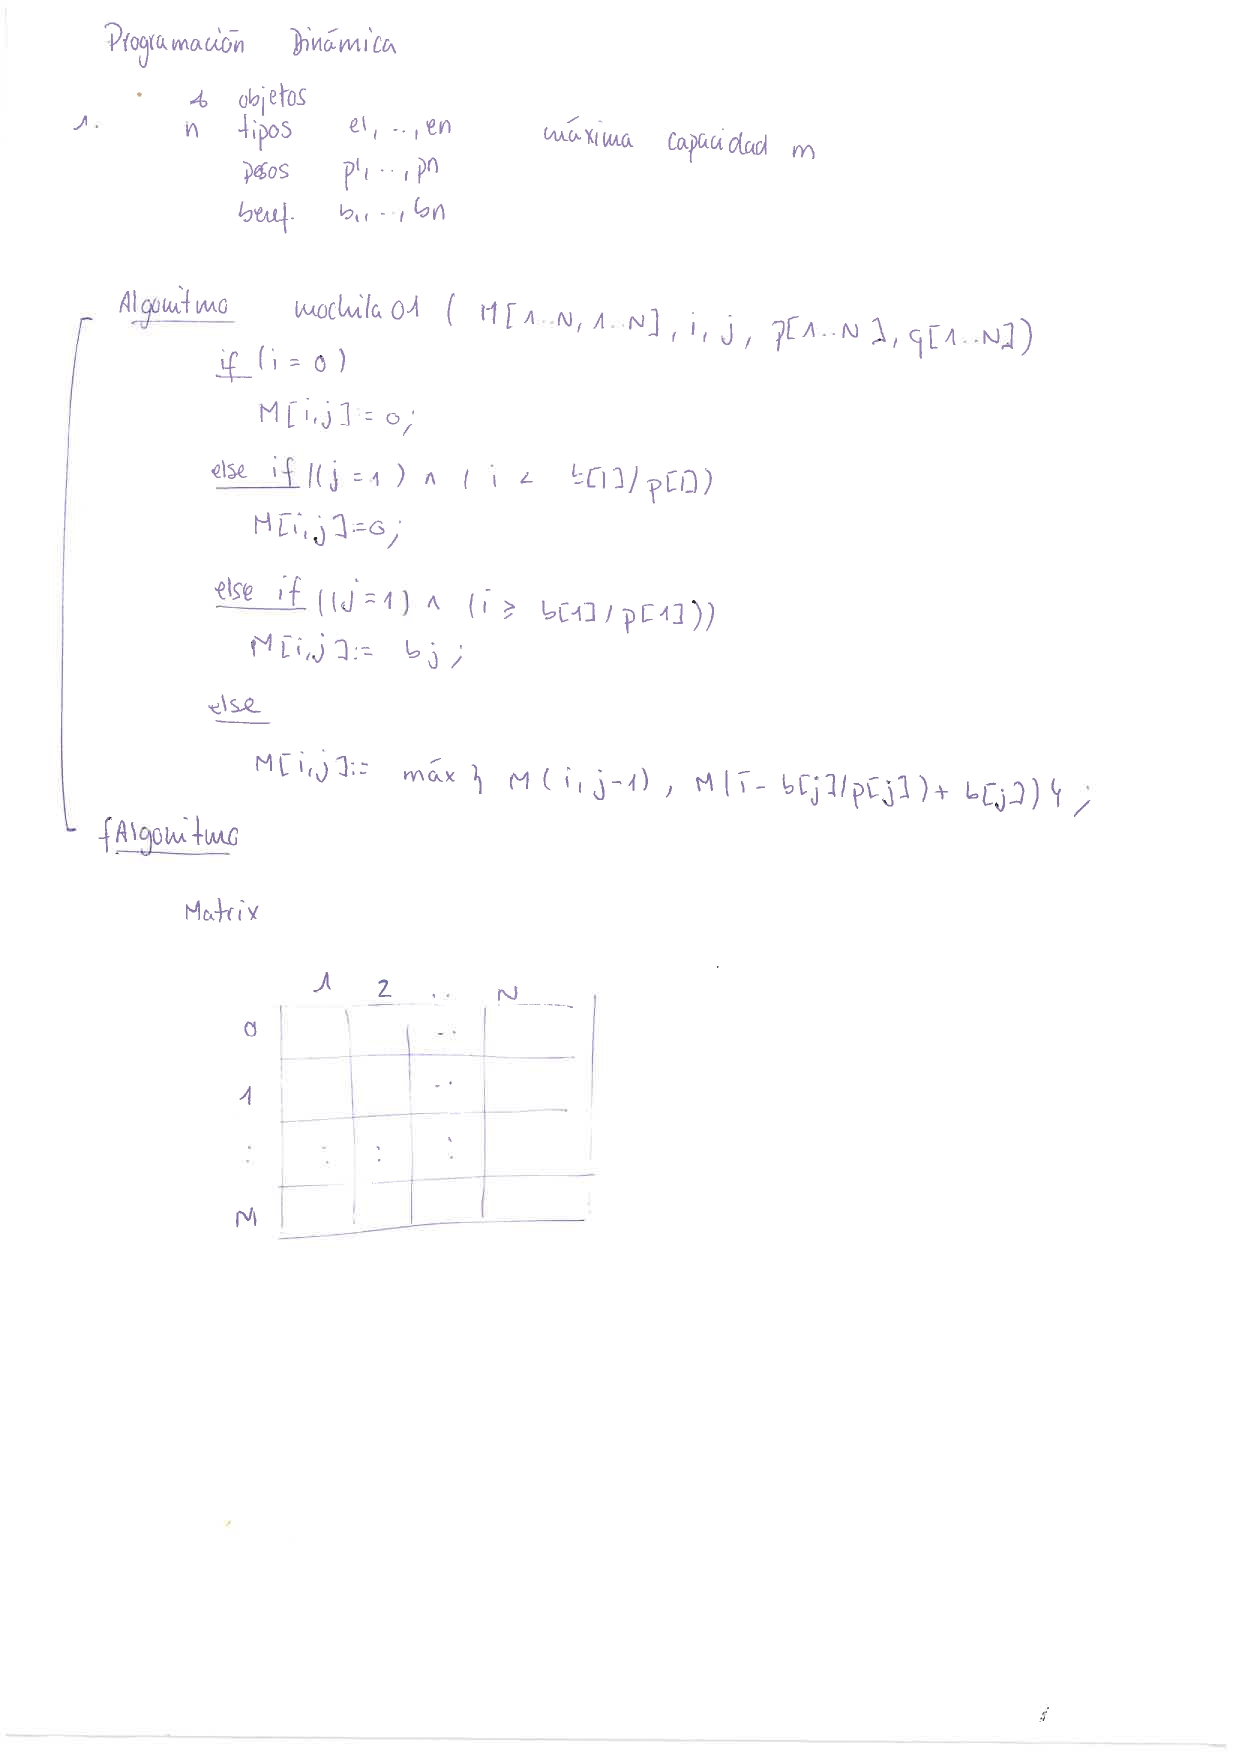 Programación Dinámica
objetos
1. n tipos e1, .., en máxima capacidad m
pesos p1, .., pn
benef. b1, .., bn
Algoritmo mochila 01 ( M[1..N, 1..N], i, j, p[1..N], q[1..N])
if (i = 0)
M[i,j] := 0;
else if ((j = 1) ∧ ( i < b[1]/p[1])
M[i,j] := 0;
else if ((j = 1) ∧ (i ≥ b[1]/p[1]))
M[i,j] := bj;
else
M[i,j] := máx { M(i, j-1), M(i - b[j]/p[j]) + b[j]) };
fAlgoritmo
Matrix
1 2 .. N
0 ..
1 ..
: : : :
M